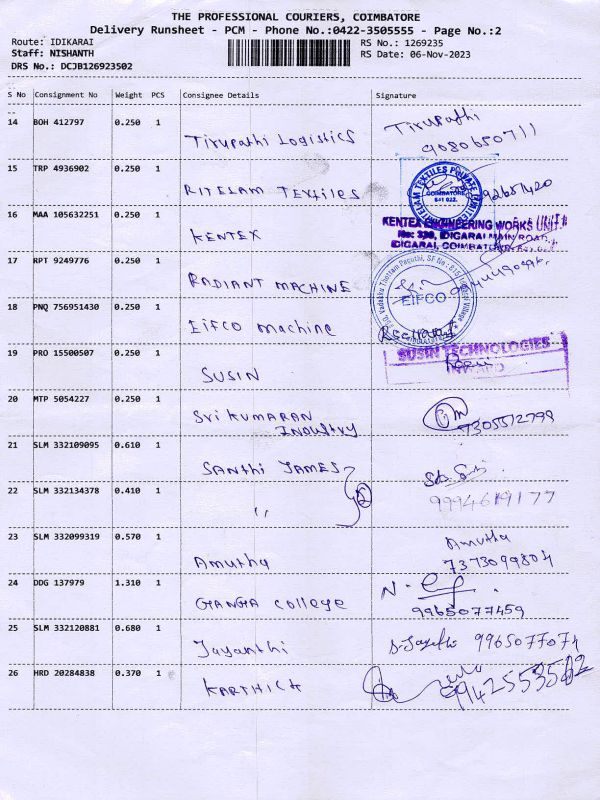 THE PROFESSIONAL COURIERS, COIMBATORE
Delivery Runsheet - PCM - Phone No.:0422-3505555 - Page No.:2
Route: IDIKARAI
Staff: NISHANTH
DRS No.: DCJB126923502
RS No.: 1269235
RS Date: 06-Nov-2023
S No Consignment No Weight PCS Consignee Details Signature
14 BOH 412797 0.250 1 Tirupathi Logistics Tirupathi
9080650711
15 TRP 4936902 0.250 1 RITELAM TEXTILES
COIMBATORE
641 022.
16 MAA 105632251 0.250 1 KENTEX
KENTEX ENGINEERING WORKS UNIT
IDIGARAI MAIN ROAD,
IDIGARAI, COIMBATORE
17 RPT 9249776 0.250 1 RADIANT MACHINE
18 PNQ 756951430 0.250 1 Eifco machine
EIFCO
Received
19 PRO 15500507 0.250 1 SUSIN
SUSIN TECHNOLOGIES
INWARD
20 MTP 5054227 0.250 1 Sri KUMARAN
INDUSTRY
7305512798
21 SLM 332109095 0.610 1 SANTHI JAMES
22 SLM 332134378 0.410 1 "
9994619177
23 SLM 332099319 0.570 1 Amutha Amutha
7373099804
24 DDG 137979 1.310 1 GANGA College
9965077459
25 SLM 332120881 0.680 1 Jayanthi 9965077074
26 HRD 20284838 0.370 1 KARTHICK